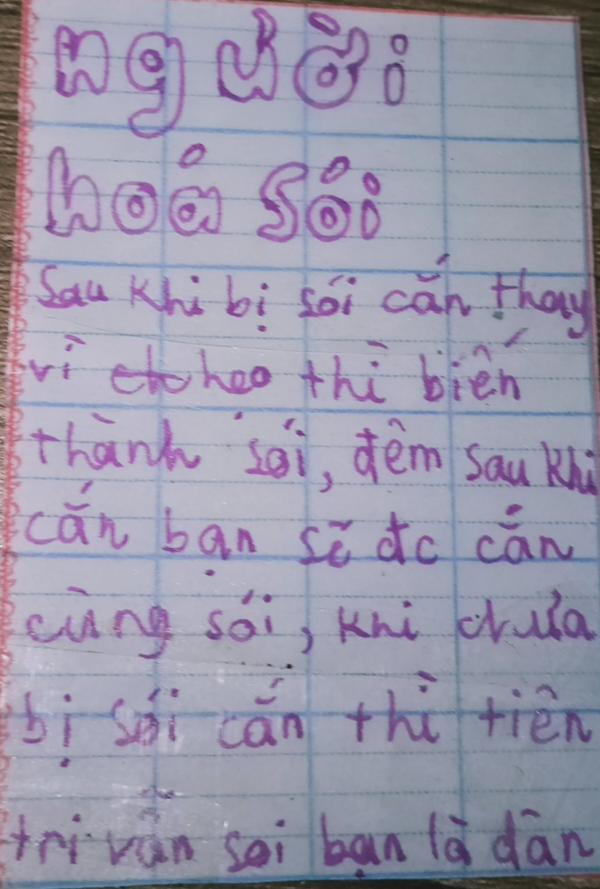 Sau khi bị sói cắn thay
vì heo thì biến
thành sói, đêm sau khi
cắn bạn sẽ đc cắn
cùng sói, khi chưa
bị sói cắn thì tiên
tri vẫn soi bạn là dân